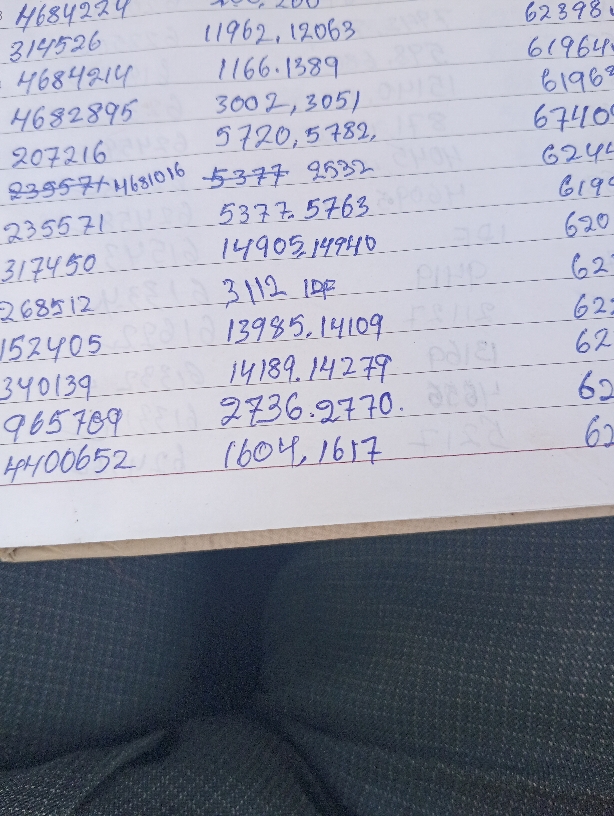 4684224 62398
314526 11962, 12063 61964
4684214 1166.1389 6196
4682895 3002, 3051 6740
207216 5720, 5782, 624
235571 4681016 5377 2532 619
235571 5377. 5763 620
317450 14905, 14940 62
268512 3112 IDF 62
152405 13985. 14109 62
340139 14189. 14279 62
965789 2736. 2770. 62
4400652 1604, 1617